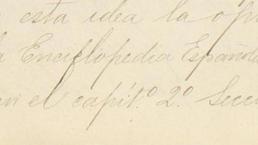 esta idea la
Enciclopedia Española
en el capít.º 2.º Secc